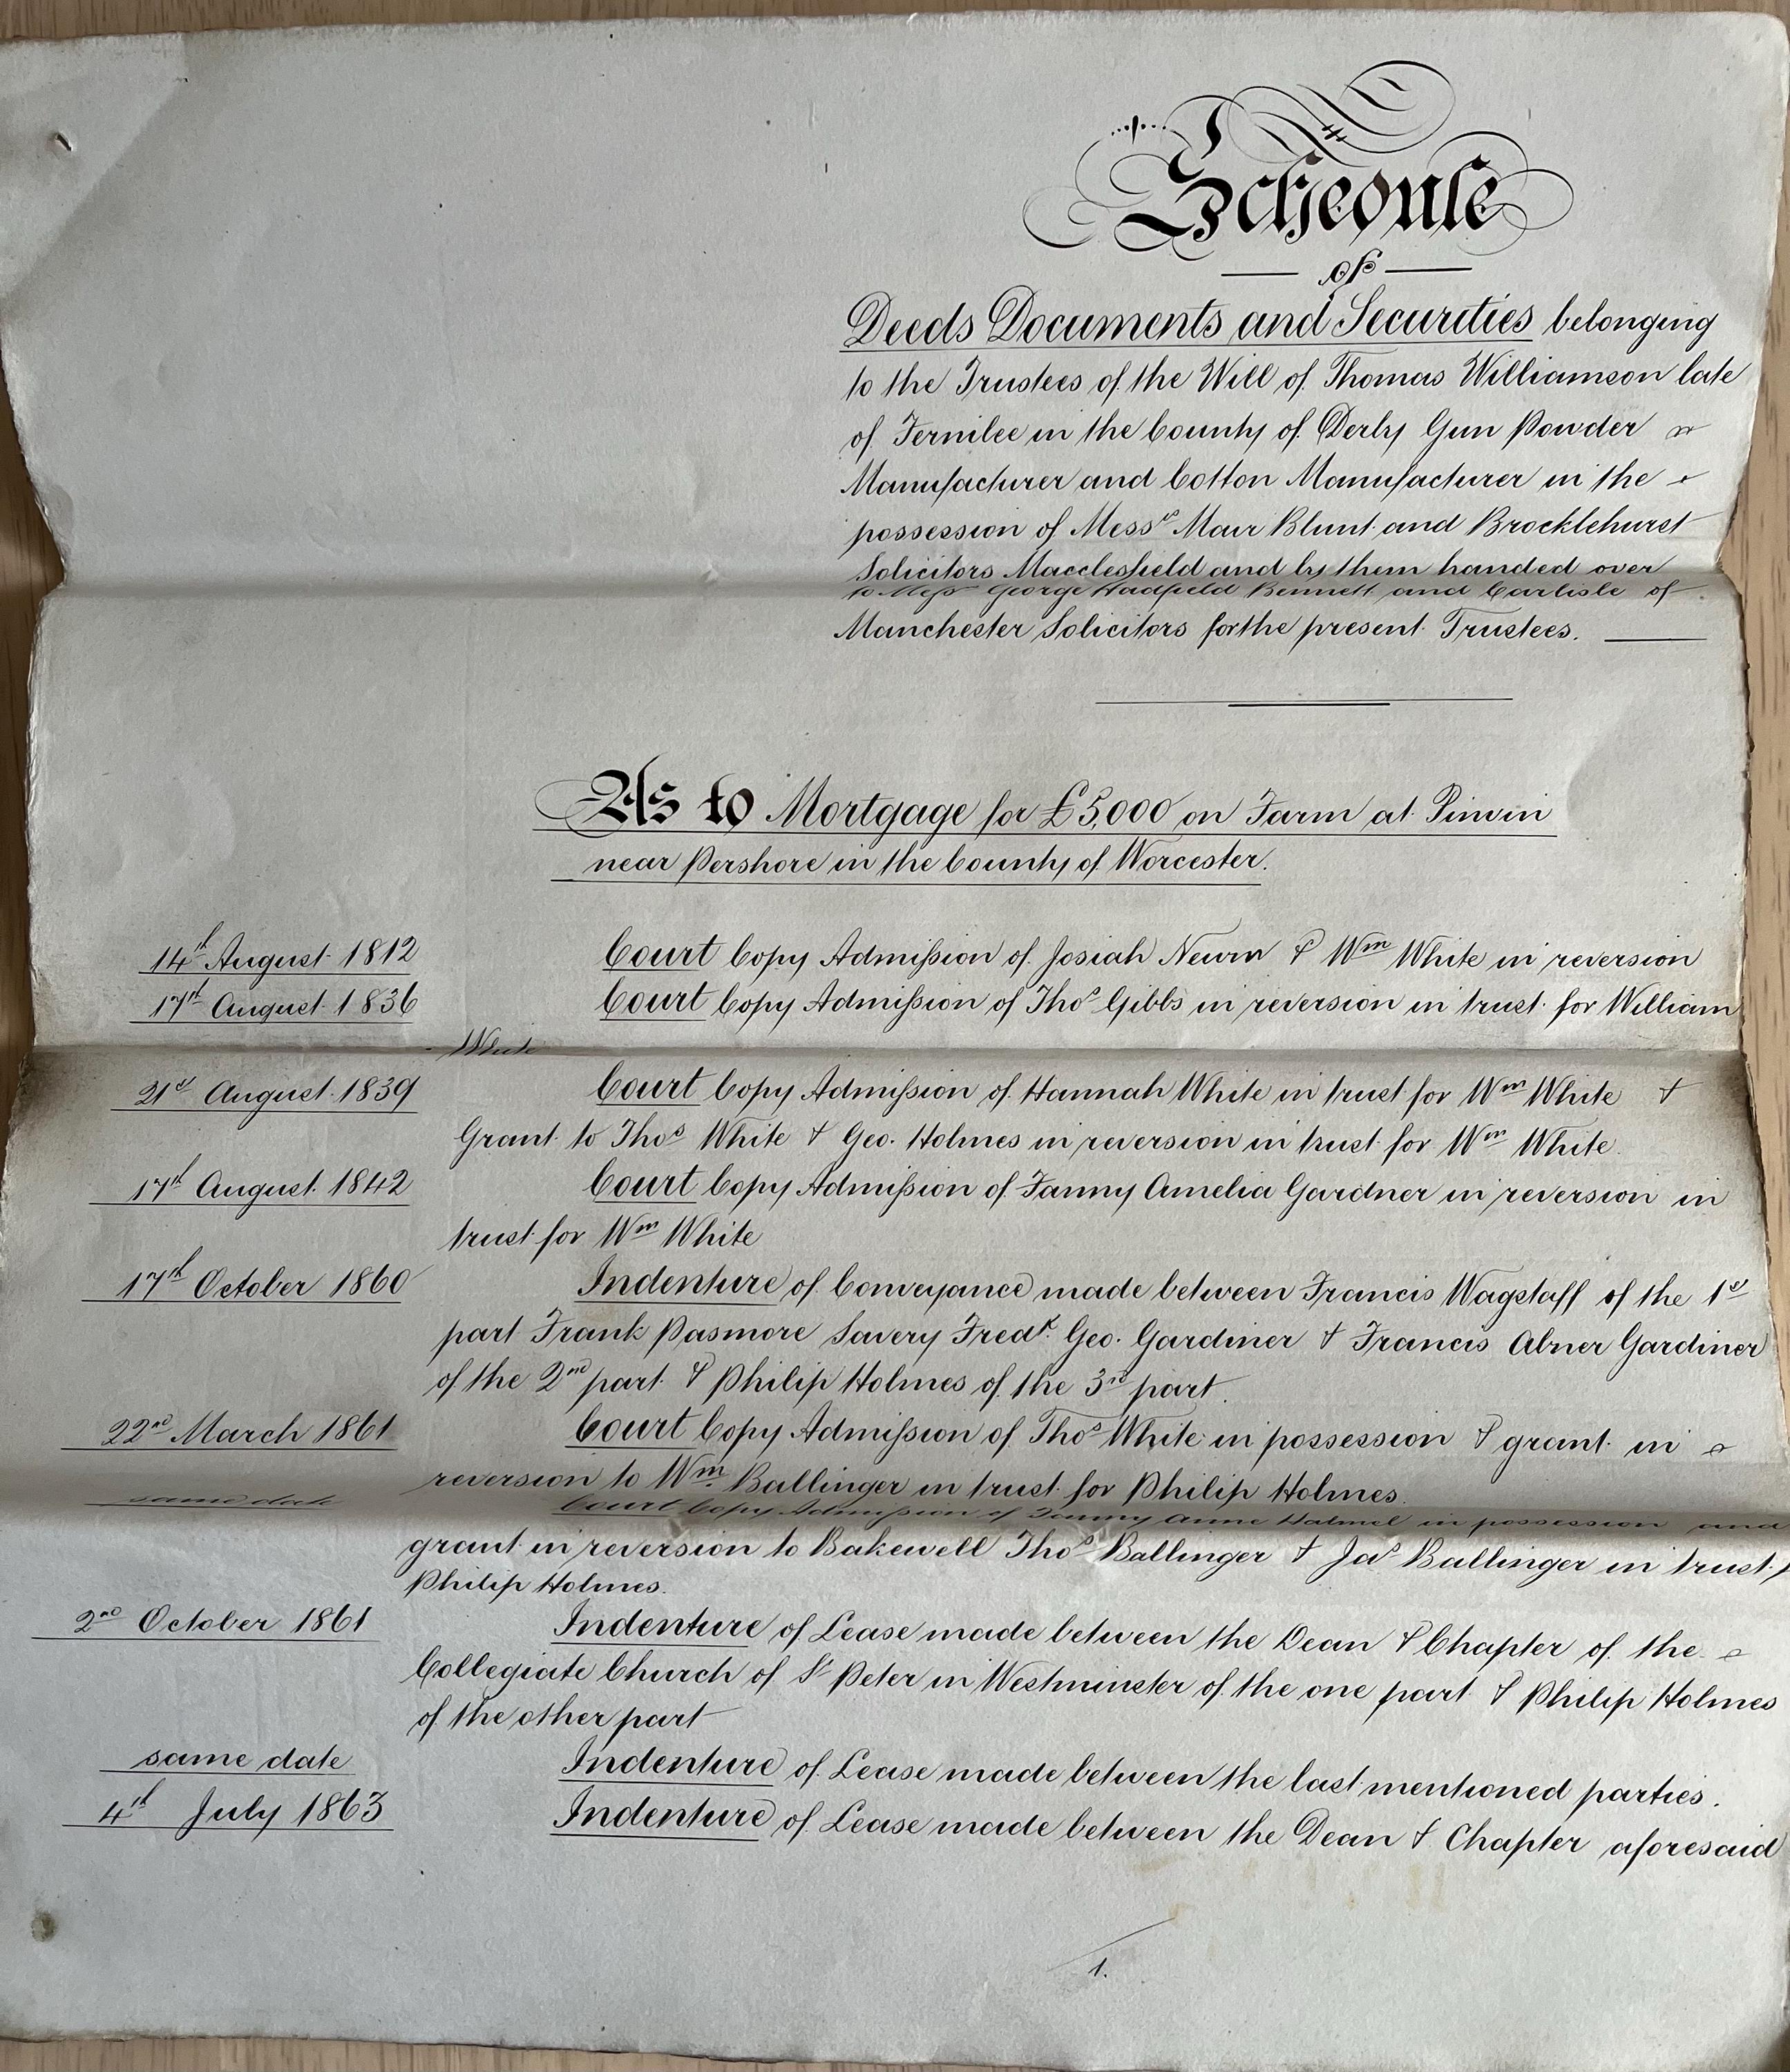 Schedule
of
Deeds Documents and Securities belonging
to the Trustees of the Will of Thomas Williamson late
of Fernilee in the County of Derby Gun Powder
Manufacturer and Cotton Manufacturer in the
possession of Messrs Mair Blunt and Brocklehurst
Solicitors Macclesfield and by them handed over
to Messrs George Hadfield Bennett and Carlisle of
Manchester Solicitors for the present Trustees.
As to Mortgage for £5,000 on Farm at Pinvin
near Pershore in the County of Worcester.
14th August 1812 Court Copy Admission of Josiah & Wm White in reversion
17th August 1836 Court Copy Admission of Thos Gibbs in reversion in trust for William
White
21st August 1839 Court Copy Admission of Hannah White in trust for Wm White &
Grant to Thos White & Geo. Holmes in reversion in trust for Wm White.
17th August 1842 Court Copy Admission of Fanny Amelia Gardner in reversion in
trust for Wm White
17th October 1860 Indenture of Conveyance made between Francis Wagstaff of the 1st
part Frank Pasmore Savery Fredk. Geo. Gardiner & Francis Abner Gardiner
of the 2nd part & Philip Holmes of the 3rd part.
22nd March 1861 Court Copy Admission of Thos White in possession & grant in
reversion to Wm. Ballinger in trust for Philip Holmes.
same date Court Copy Admission of Fanny Anne in possession and
grant in reversion to Bakewell Thos Ballinger & Jas Ballinger in trust
Philip Holmes.
2nd October 1861 Indenture of Lease made between the Dean & Chapter of the
Collegiate Church of St Peter in Westminster of the one part & Philip Holmes
of the other part
same date Indenture of Lease made between the last mentioned parties.
4th July 1863 Indenture of Lease made between the Dean & Chapter aforesaid
1.